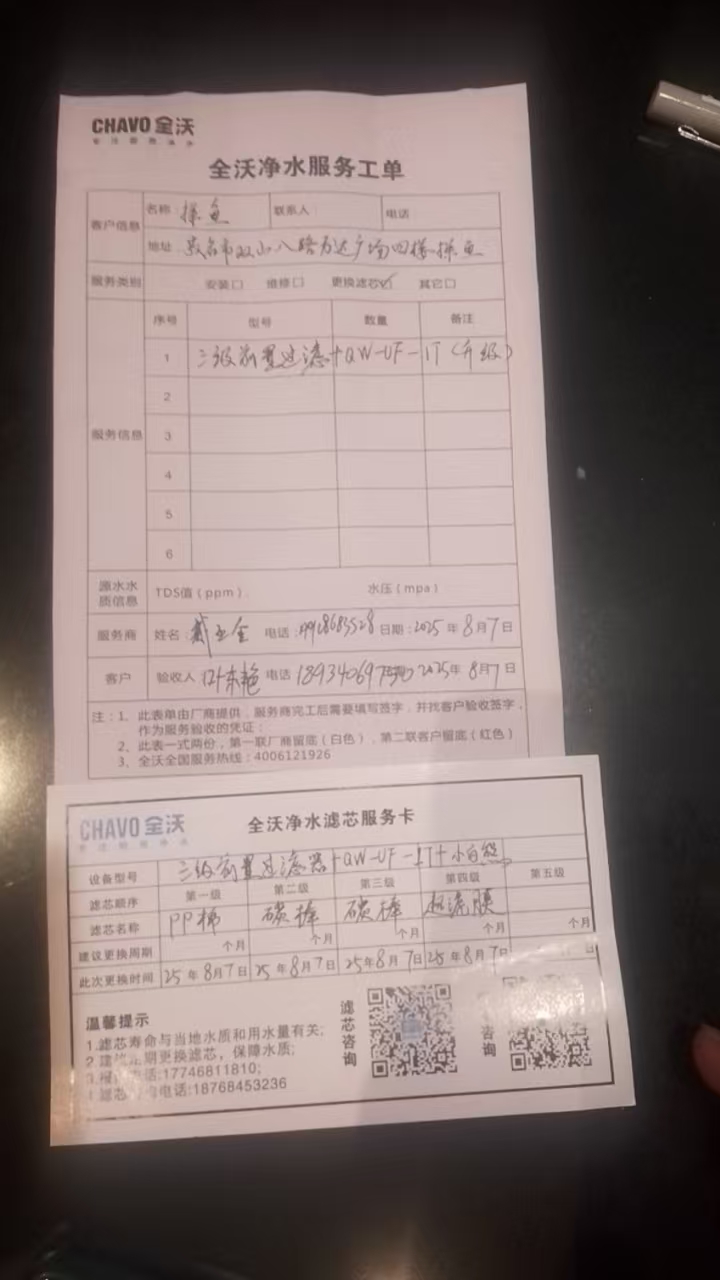 CHAVO 全沃
专注厨房净水
全沃净水服务工单
客户信息 名称 探鱼 联系人 电话
地址 茂名市双山八路万达广场四楼探鱼
服务类别 安装□ 维修□ 更换滤芯☑ 其它□
服务信息 序号 型号 数量 备注
1 三级前置过滤+QW-UF-1T(升级)
2
3
4
5
6
源水水质信息 TDS值(ppm) 水压(mpa)
服务商 姓名: 电话: 日期:2025年8月7日
客户 验收人 叶东艳 电话 2025年8月7日
注:1、此表单由厂商提供,服务商完工后需要填写签字,并找客户验收签字,
作为服务验收的凭证;
2、此表一式两份,第一联厂商留底(白色),第二联客户留底(红色)
3、全沃全国服务热线:4006121926
CHAVO 全沃
全沃净水滤芯服务卡
设备型号 三级前置过滤器+QW-UF-1T+小白熊
滤芯顺序 第一级 第二级 第三级 第四级 第五级
滤芯名称 PP棉 碳棒 碳棒 超滤膜
建议更换周期 个月 个月 个月 个月 个月
此次更换时间 25年8月7日 25年8月7日 25年8月7日 25年8月7日 日
温馨提示
1.滤芯寿命与当地水质和用水量有关;
2 定期更换滤芯,保障水质;
电话:17746811810;
滤芯 电话:18768453236
滤芯咨询
咨询